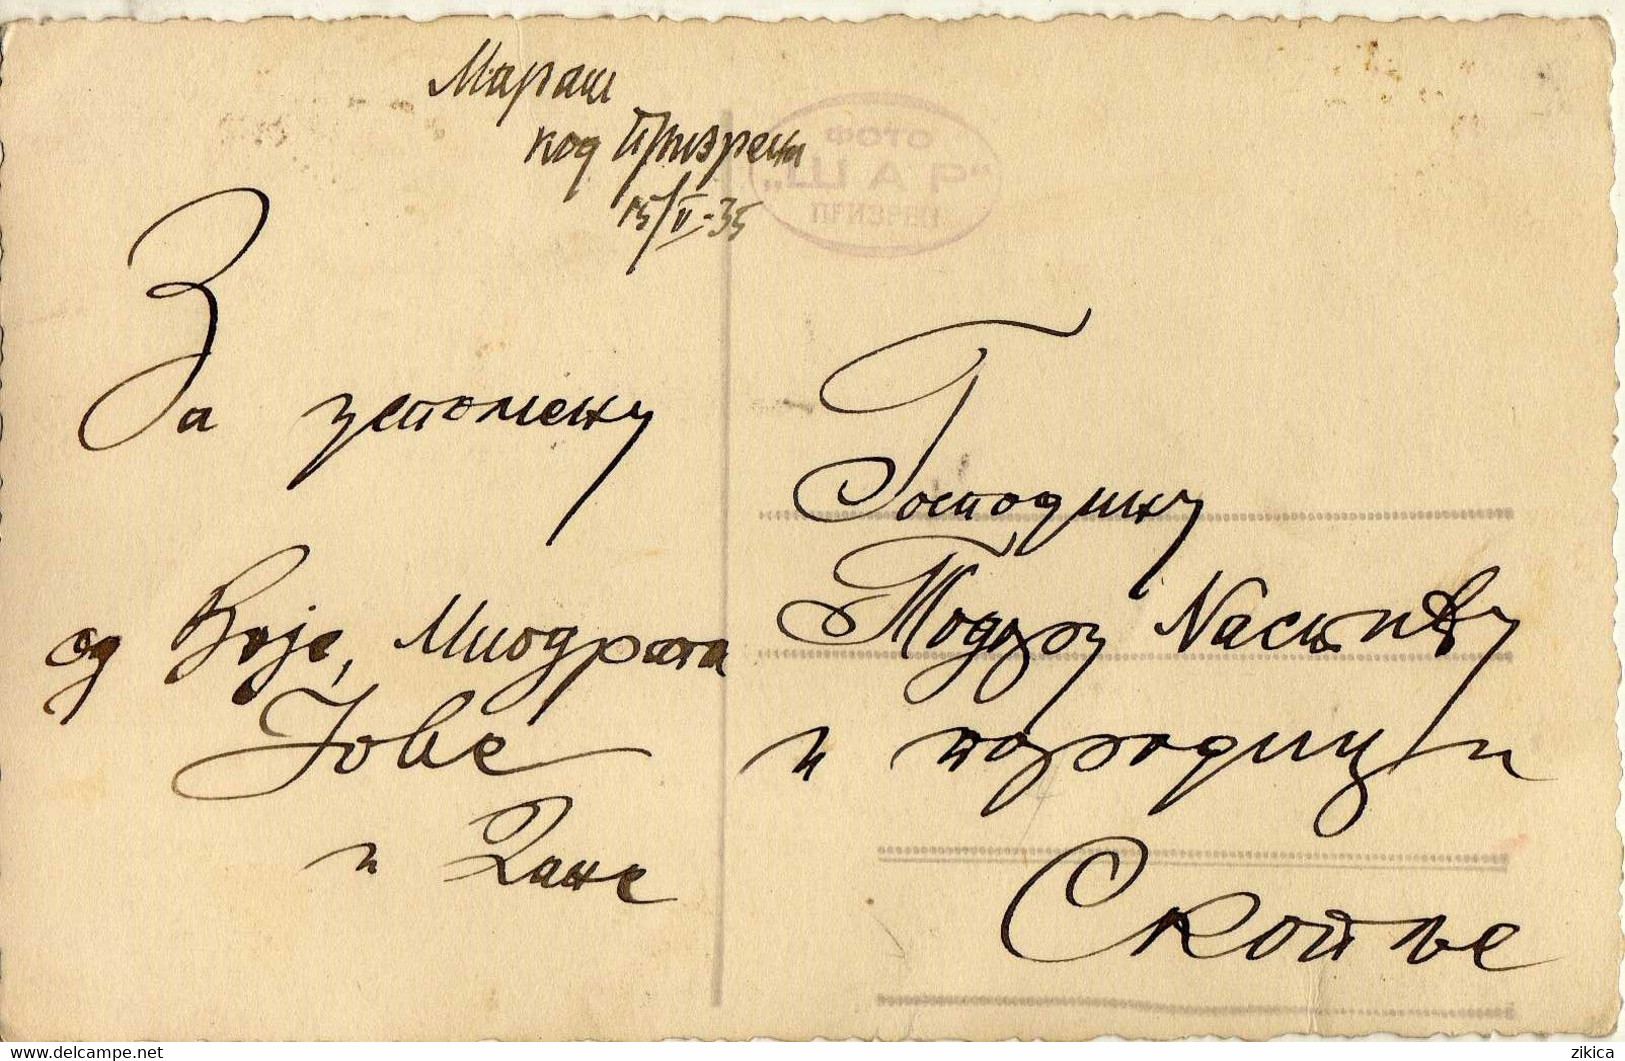 Мараш
код Призрена
15/II-35
ФОТО
„ШАР“
ПРИЗРЕН
За успомену
од Воје, Миодрага
Јове
и Дане
Господину
Тодору
и породици
Скопље
delcampe.net
zikica